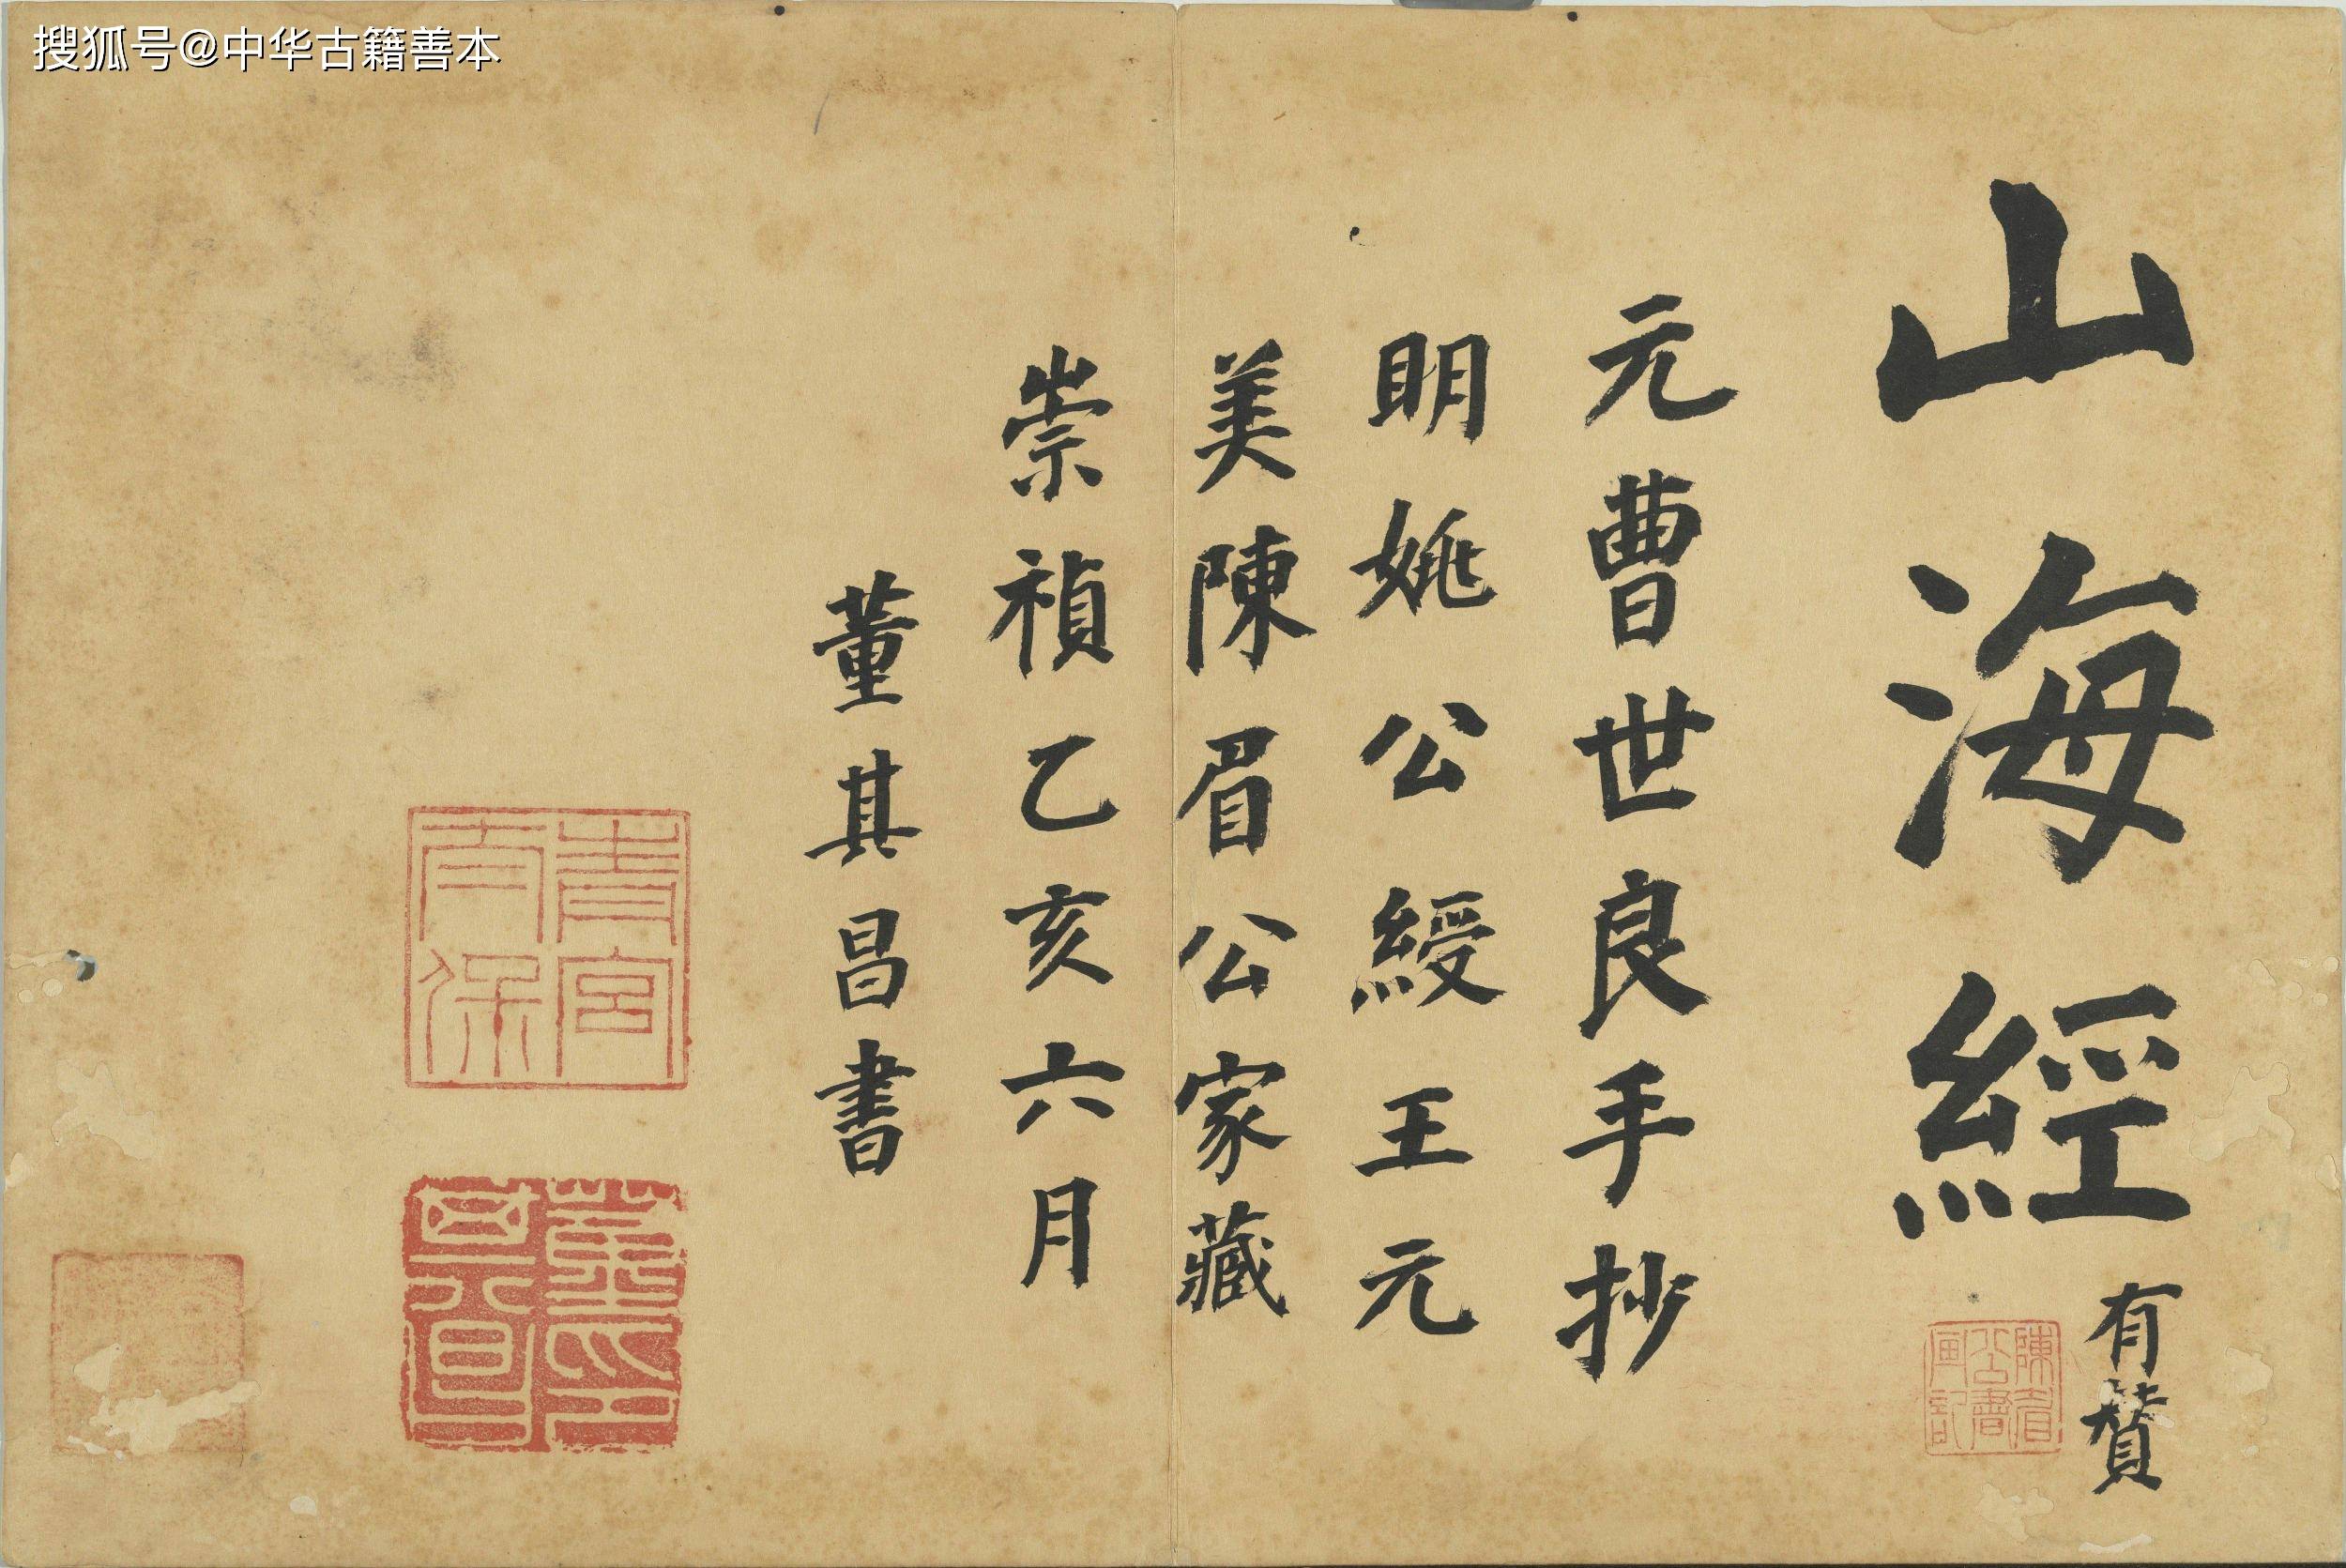 搜狐号@中华古籍善本
山海經 有賛
陳眉公書画記
元曹世良手抄
眀姚公綬王元
美陳眉公家藏
崇禎乙亥六月
董其昌書
青宮太保